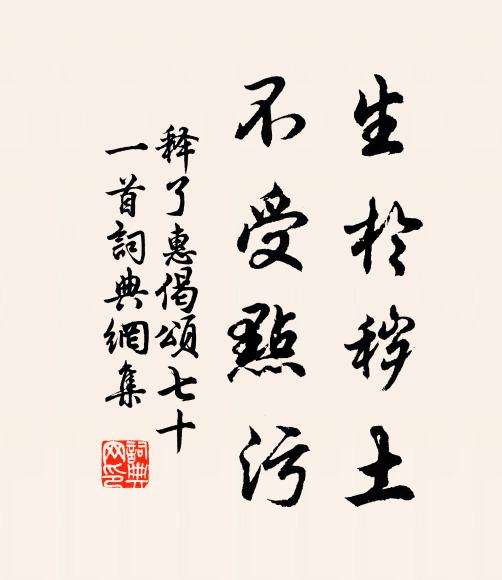 生於秽土
不受點污
释了惠偈頌七十
一首詞典網集
詞典
网印